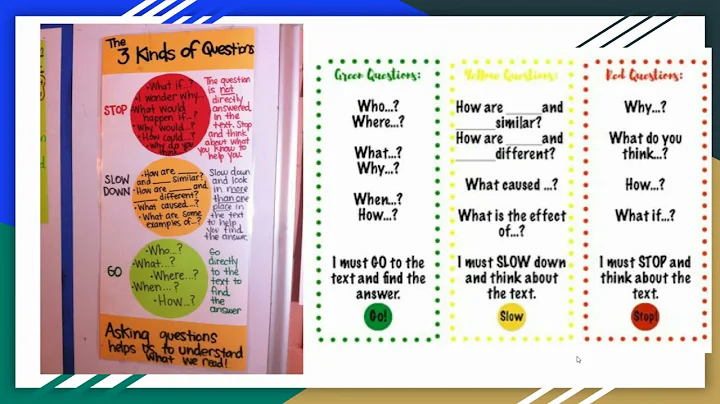 The
3 Kinds of Questions
STOP
• What if...?
• I wonder why...
What would
happen if...?
• Why would...?
• How could...?
• Why do you
think
The question
is not
directly
answered
in the
text. Stop
and think
about what
you know to
help you.
SLOW
DOWN
• How are
and ____ Similar?
• How are ____ and
____ different?
• What caused...?
• What are some
examples of...?
Slow down
and look
in more
than one
place in
the text
to help
you find
the answer.
GO
• Who...?
• What...?
• Where...?
• When...?
• How...?
Go
directly
to the
text to
find
the
answer
Asking questions
helps us to understand
what we read!
Green Questions:
Who...?
Where...?
What...?
Why...?
When...?
How...?
I must GO to the
text and find the
answer.
Go!
Yellow Questions:
How are ____ and
____ similar?
How are ____ and
____ different?
What caused ...?
What is the effect
of...?
I must SLOW down
and think about
the text.
Slow
Red Questions:
Why...?
What do you
think...?
How...?
What if...?
I must STOP and
think about the
text.
Stop!